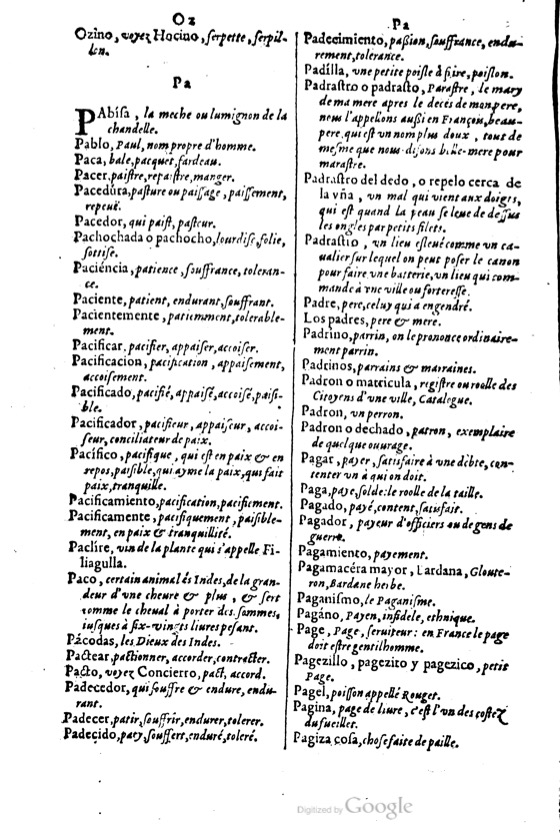 Oz
Ozino, voyez Hocino, serpette, serpil-
len.
Pa
PAbísa, la meche ou lumignon de la
chandelle.
Pablo, Paul, nom propre d'homme.
Paca, bale, pacquet, fardeau.
Pacer, paistre, repaistre, manger.
Pacedúra, pasture ou paissage, paissement,
repeuë.
Pacedor, qui paist, pasteur.
Pachochada o pachocho, lourdise, folie,
sottise.
Paciéncia, patience, souffrance, toleran-
ce.
Paciente, patient, endurant, souffrant.
Pacientemente, patiemment, tolerable-
ment.
Pacificar, pacifier, appaiser, accoiser.
Pacificacion, pacification, appaisement,
accoisement.
Pacificado, pacifié, appaisé, accoisé, paisi-
ble.
Pacificador, pacificur, appaiseur, accoi-
seur, conciliateur de paix.
Pacífico, pacifique, qui est en paix & en
repos, paisible, qui ayme la paix, qui fait
paix, tranquille.
Pacificamiento, pacification, pacificment.
Pacificamente, pacifiquement, paisible-
ment, en paix & tranquillité.
Paclíre, vin de la plante qui s'appelle Fi-
liagulla.
Paco, certain animal és Indes, de la gran-
deur d'vne cheure & plus, & sert
comme le cheual à porter des sammes,
iusques à six-vingts liures pesant.
Pácodas, les Dieux des Indes.
Pactear, pactionner, accorder, contracter.
Pacto, voyez Concierro, pact, accord.
Padecedor, qui souffre & endure, endu-
rant.
Padecer, patir, souffrir, endurer, tolerer.
Padecido, paty, souffert, enduré, toleré.
Pa
Padecimiento, passion, souffrance, endu-
rement, tolerance.
Padílla, vne petite poisle à frire, poislon.
Padrastro o padrasto, Parastre, le mary
de ma mere apres le decés de mon pere,
nous l'appellons aussi en François, beau-
pere, qui est vn nom plus doux, tout de
mesme que nous disons belle-mere pour
marastre.
Padrastro del dedo, o repelo cerca de
la vña, vn mal qui vient aux doigts,
qui est quand la peau se leue de dessus
les ongles par petits filets.
Padrastro, vn lieu esleué comme vn ca-
ualier sur lequel on peut poser le canon
pour faire vne batterie, vn lieu qui com-
mande à vne ville ou forteresse.
Padre, pere, celuy qui a engendré.
Los padres, pere & mere.
Padrino, parrin, on le prononce ordinaire-
ment parrin.
Padrinos, parrains & marraines.
Padron o matricula, registre ou roolle des
Citoyens d'une ville, Catalogue.
Padron, vn perron.
Padron o dechado, patron, exemplaire
de quelque ouurage.
Pagar, payer, satisfaire à vne debte, con-
tenter vn à qui on doit.
Paga, paye, solde: le roolle de la taille.
Pagado, payé, content, satisfait.
Pagador, payeur d'officiers ou de gens de
guerre.
Pagamiento, payement.
Pagamacéra mayor, Lardana, Gloute-
ron, Bardane herbe.
Paganísmo, le Paganisme.
Pagáno, Payen, infidele, ethnique.
Page, Page, seruiteur: en France le page
doit estre gentilhomme.
Pagezillo, pagezito y pagezico, petit
Page.
Pagel, poisson appellé Rouget.
Pagina, page de liure, c'est l'vn des costez
du fueillet.
Pagiza cosa, chose faite de paille.
Digitized by Google